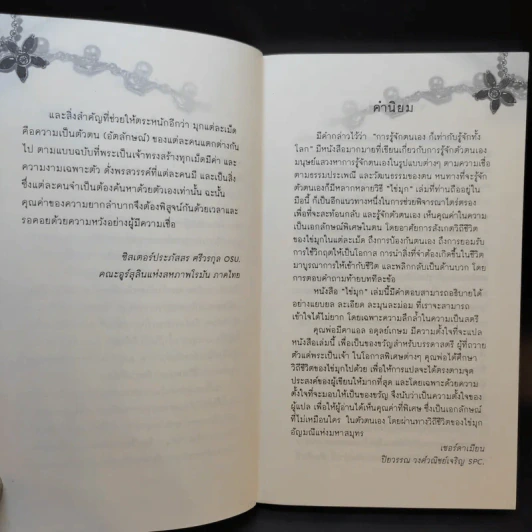 และสิ่งสำคัญที่ช่วยให้ตระหนักอีกว่า มุกแต่ละเม็ด
คือความเป็นตัวตน (อัตลักษณ์) ของแต่ละคนแตกต่างกัน
ไป ตามแบบฉบับที่พระเป็นเจ้าทรงสร้างทุกเม็ดมีค่า และ
ความงามเฉพาะตัว ดั่งพรสวรรค์ที่แต่ละคนมี และเป็นสิ่ง
ซึ่งแต่ละคนจำเป็นต้องค้นหาด้วยตัวเองเท่านั้น ฉะนั้น
คุณค่าของความยากลำบากจึงต้องพิสูจน์กันด้วยเวลาและ
รอคอยด้วยความหวังอย่างผู้มีความเชื่อ
ซิสเตอร์ประภัสสร ศรีวรกุล OSU.
คณะอุร์สุลินแห่งสหภาพโรมัน ภาคไทย
คำนิยม
มีคำกล่าวไว้ว่า "การรู้จักตนเอง ก็เท่ากับรู้จักทั้ง
โลก" มีหนังสือมากมายที่เขียนเกี่ยวกับการรู้จักตัวตนเอง
มนุษย์แสวงหาการรู้จักตนเองในรูปแบบต่างๆ ตามความเชื่อ
ตามธรรมประเพณี และวัฒนธรรมของตน หนทางที่จะรู้จัก
ตัวตนเองก็มีหลากหลายวิธี "ไข่มุก" เล่มที่ท่านถืออยู่ใน
มือนี้ ก็เป็นอีกแนวทางหนึ่งในการช่วยพิจารณาไตร่ตรอง
เพื่อที่จะสะท้อนกลับ และรู้จักตัวตนเอง เห็นคุณค่าในความ
เป็นเอกลักษณ์พิเศษในตน โดยอาศัยการสังเกตวิถีชีวิต
ของไข่มุกในแต่ละเม็ด ถึงการป้องกันตนเอง ถึงการยอมรับ
การใช้วิกฤตให้เป็นโอกาส การนำสิ่งที่จำต้องเกิดขึ้นในชีวิต
มาบูรณาการให้เข้ากับชีวิต และพลิกกลับเป็นด้านบวก โดย
การตอบคำถามท้ายบททีละข้อ
หนังสือ "ไข่มุก" เล่มนี้มีคำตอบสามารถอธิบายได้
อย่างแยบยล ละเอียด ละมุนละม่อม ที่เราจะสามารถ
เข้าใจได้ไม่ยาก โดยเฉพาะความลึกล้ำในความเป็นสตรี
คุณพ่อมีคาแอล อดุลย์เกษม มีความตั้งใจที่จะแปล
หนังสือเล่มนี้ เพื่อเป็นของขวัญสำหรับบรรดาสตรี ผู้ที่ถวาย
ตัวแด่พระเป็นเจ้า ในโอกาสพิเศษต่างๆ คุณพ่อได้ศึกษา
วิถีชีวิตของไข่มุกไปด้วย เพื่อให้การแปลจะได้ตรงตามจุด
ประสงค์ของผู้เขียนให้มากที่สุด และโดยเฉพาะด้วยความ
ตั้งใจที่จะมอบให้เป็นของขวัญ จึงนับว่าเป็นความตั้งใจของ
ผู้แปล เพื่อให้ผู้อ่านได้เห็นคุณค่าที่พิเศษ ซึ่งเป็นเอกลักษณ์
ที่ไม่เหมือนใคร ในตัวตนเอง โดยผ่านทางวิถีชีวิตของไข่มุก
อัญมณีแห่งมหาสมุทร
เซอร์ดาเมียน
ปิยวรรณ วงศ์วณิชย์เจริญ SPC.